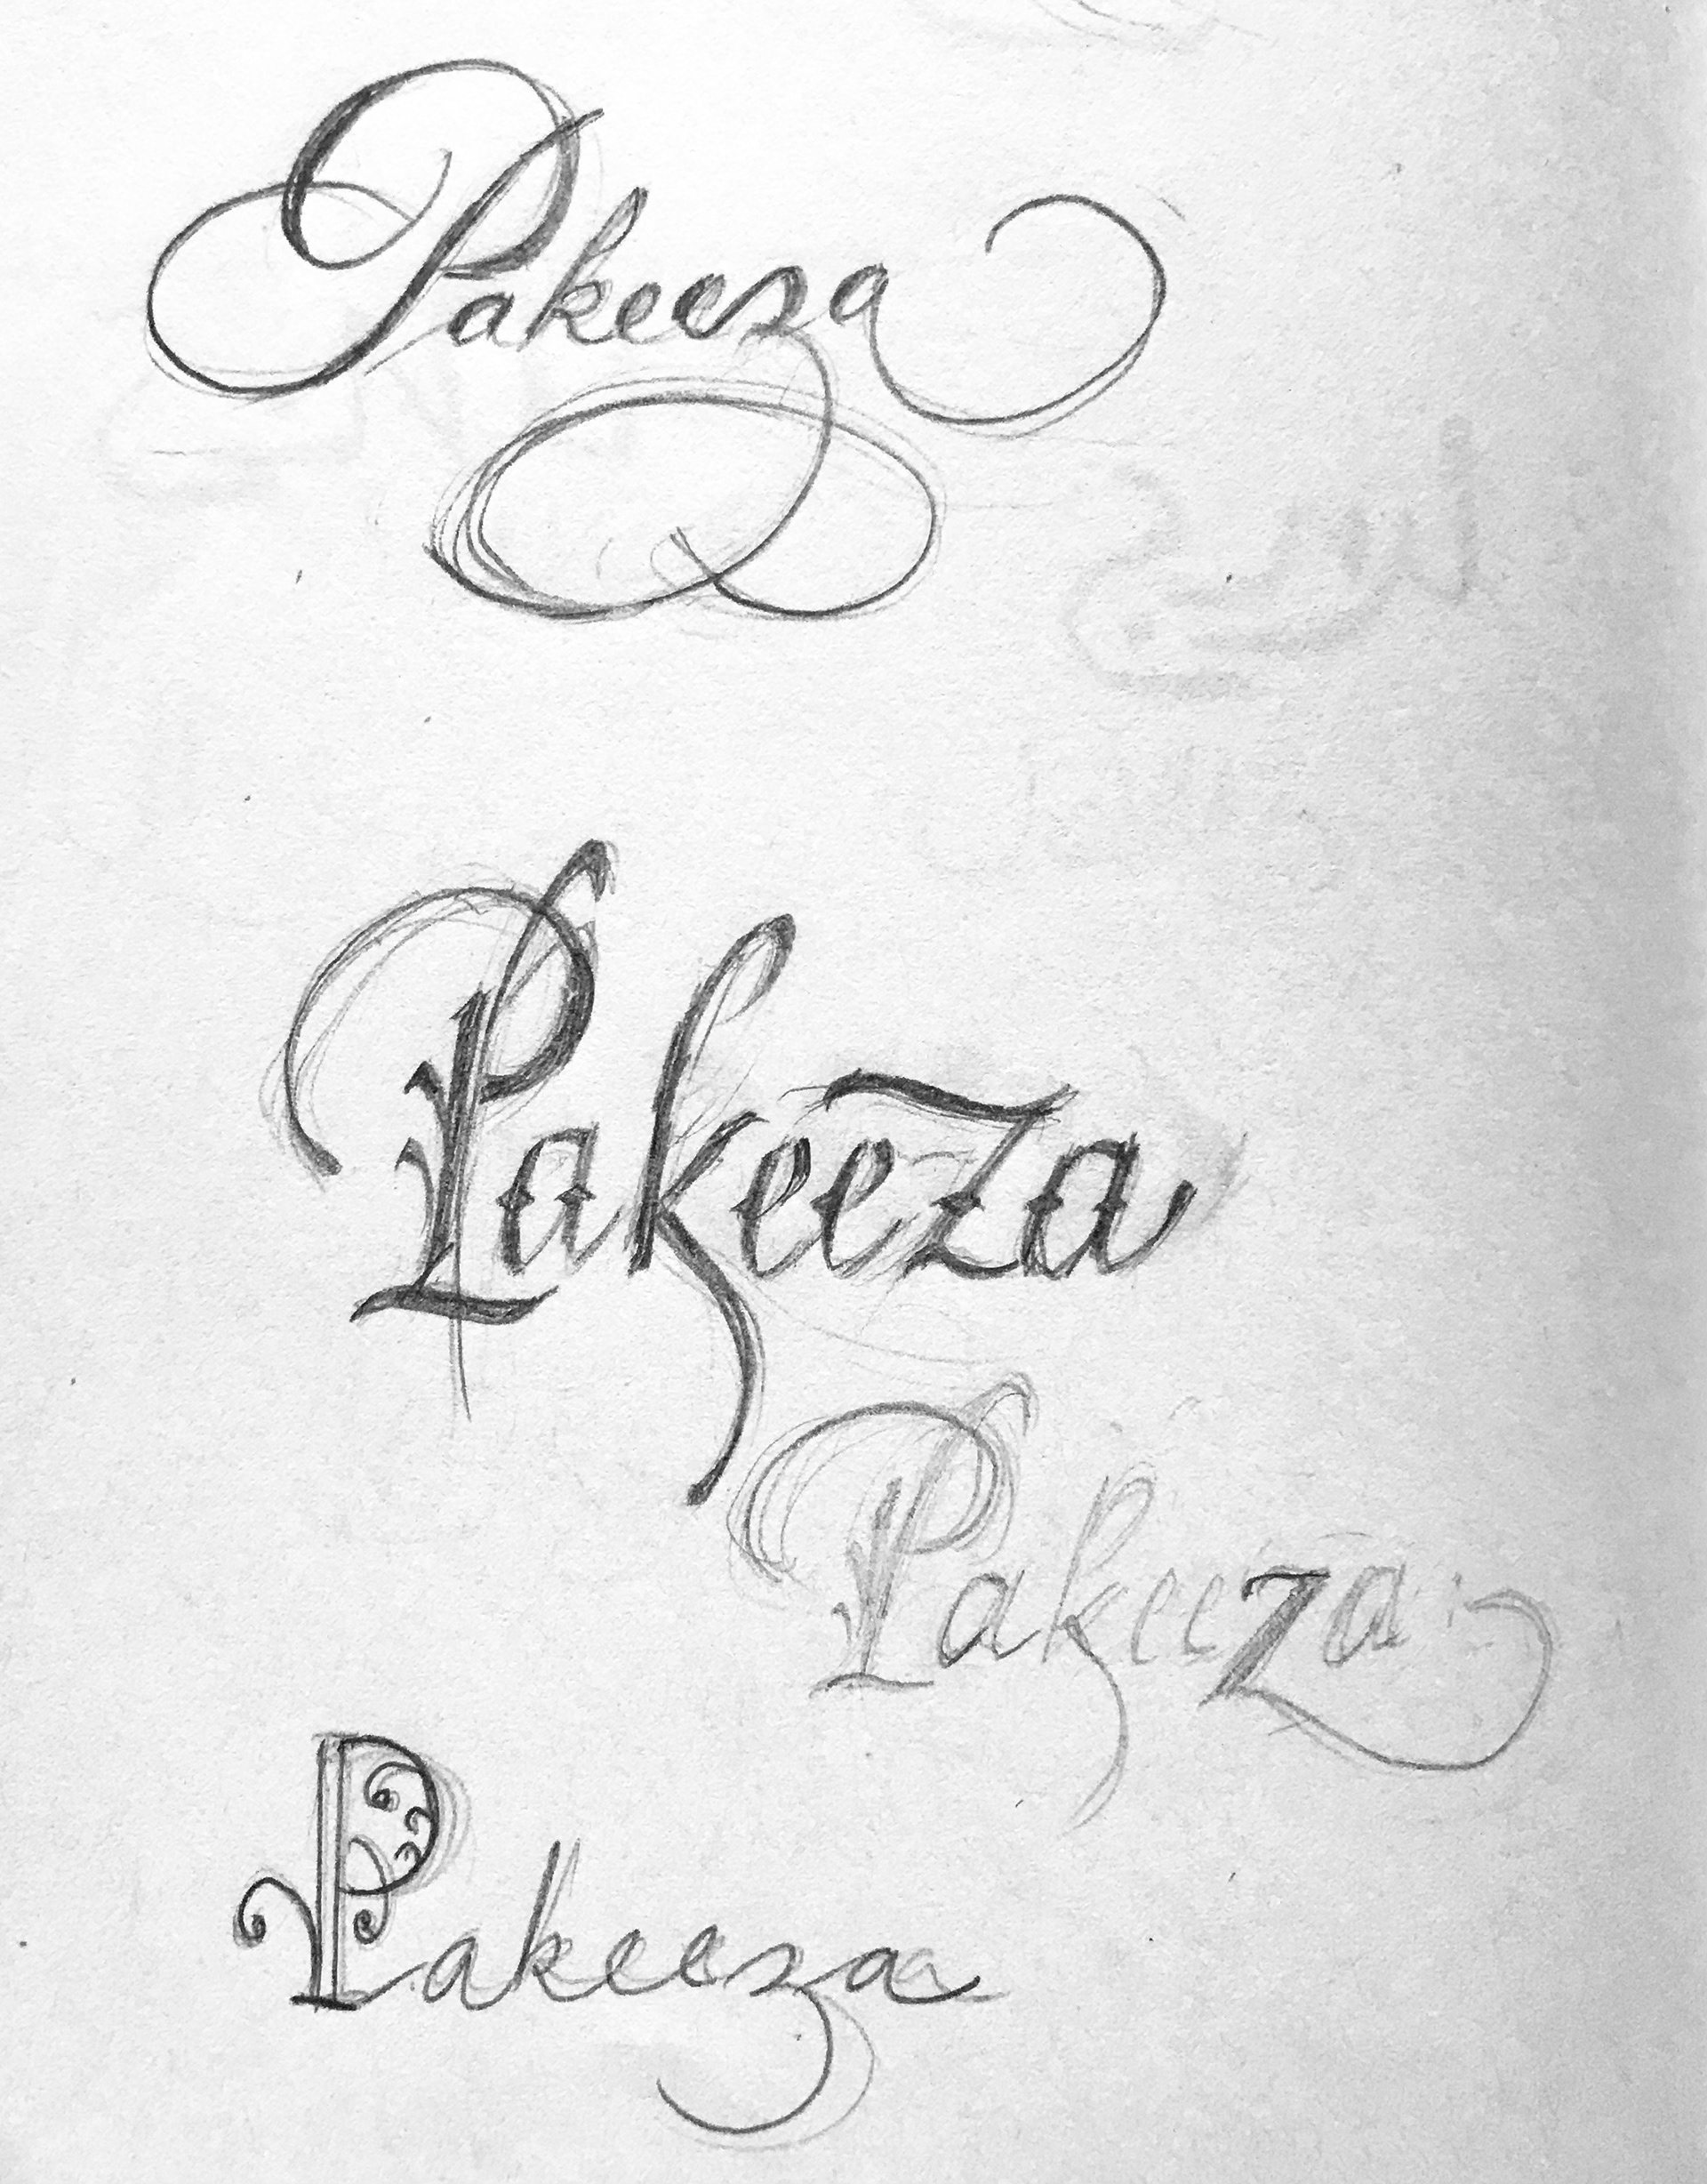 Pakeeza
Pakeeza
Pakeeza
Pakeeza